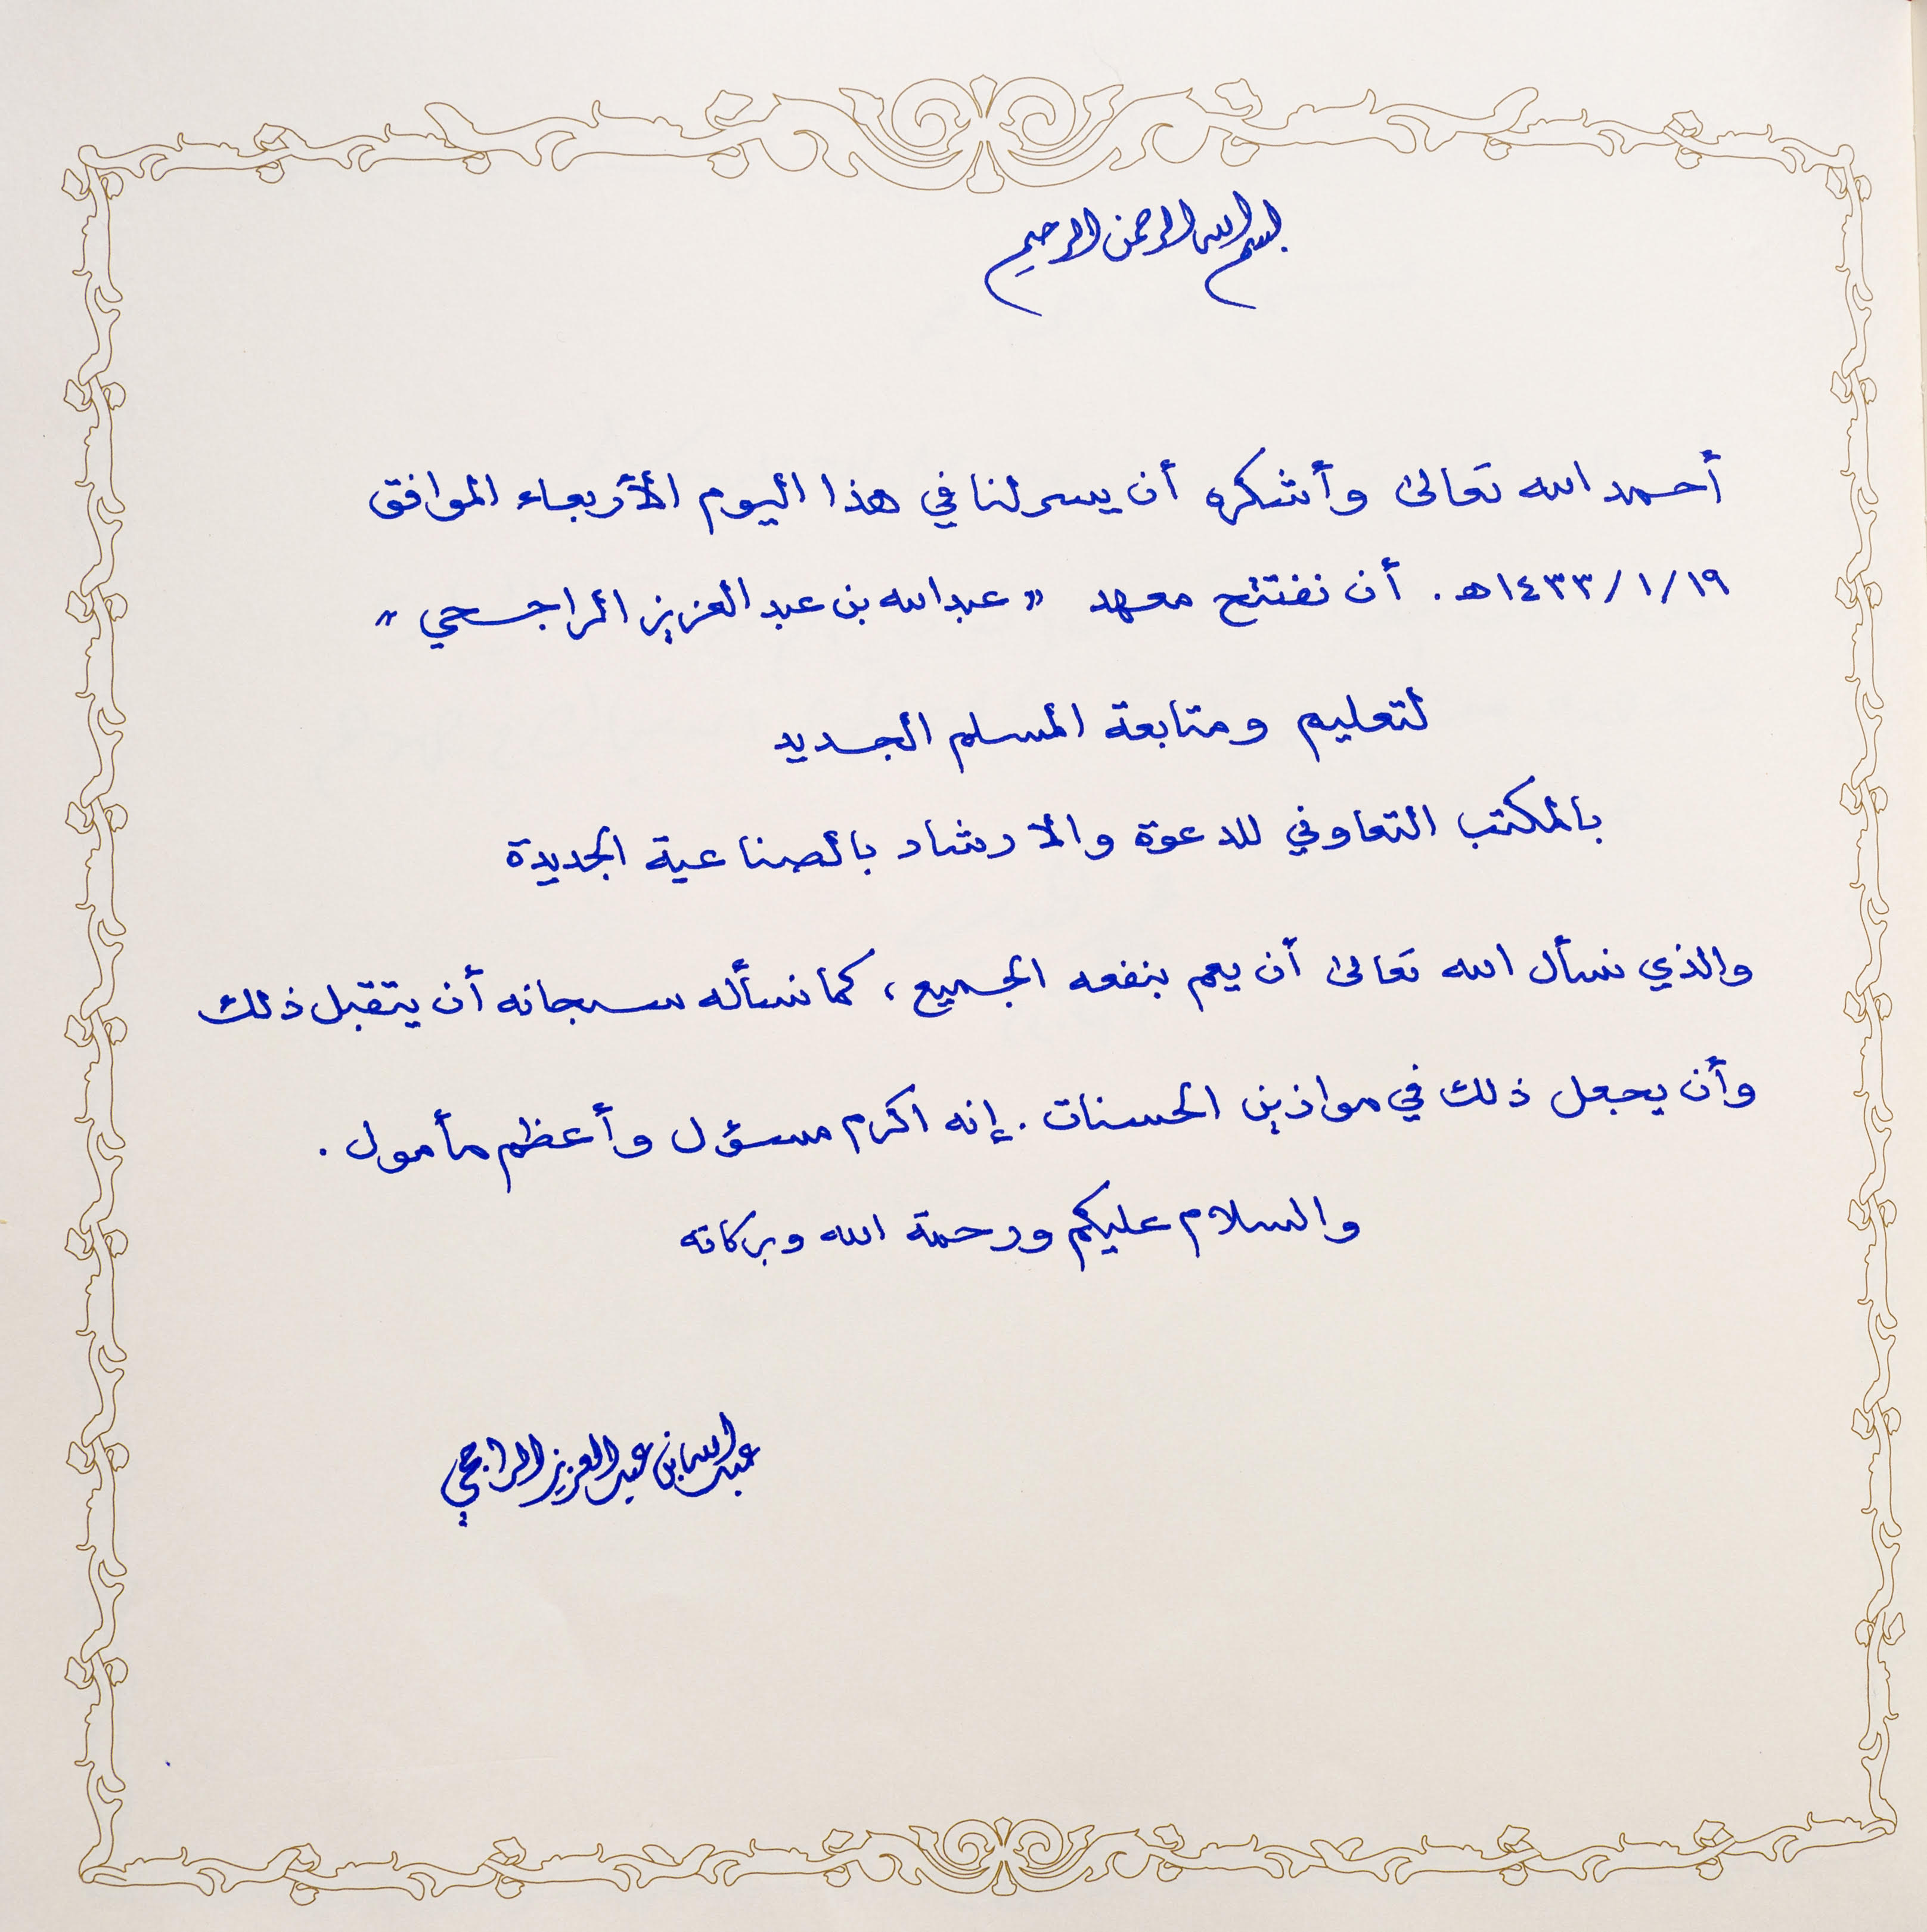 بسم الله الرحمن الرحيم
أحمد الله تعالى وأشكره أن يسر لنا في هذا اليوم الأربعاء الموافق
١٤٣٣/١/١٩هـ . أن نفتتح معهد « عبدالله بن عبد العزيز الراجحي »
لتعليم ومتابعة المسلم الجديد
بالمكتب التعاوني للدعوة والارشاد بالصناعية الجديدة
والذي نسأل الله تعالى أن يعم بنفعه الجميع ، كما نسأله سبحانه أن يتقبل ذلك
وأن يجعل ذلك في موازين الحسنات . إنه اكرم مسؤل وأعظم مأمول .
والسلام عليكم ورحمة الله وبركاته
عبدالله بن عبدالعزيز الراجحي